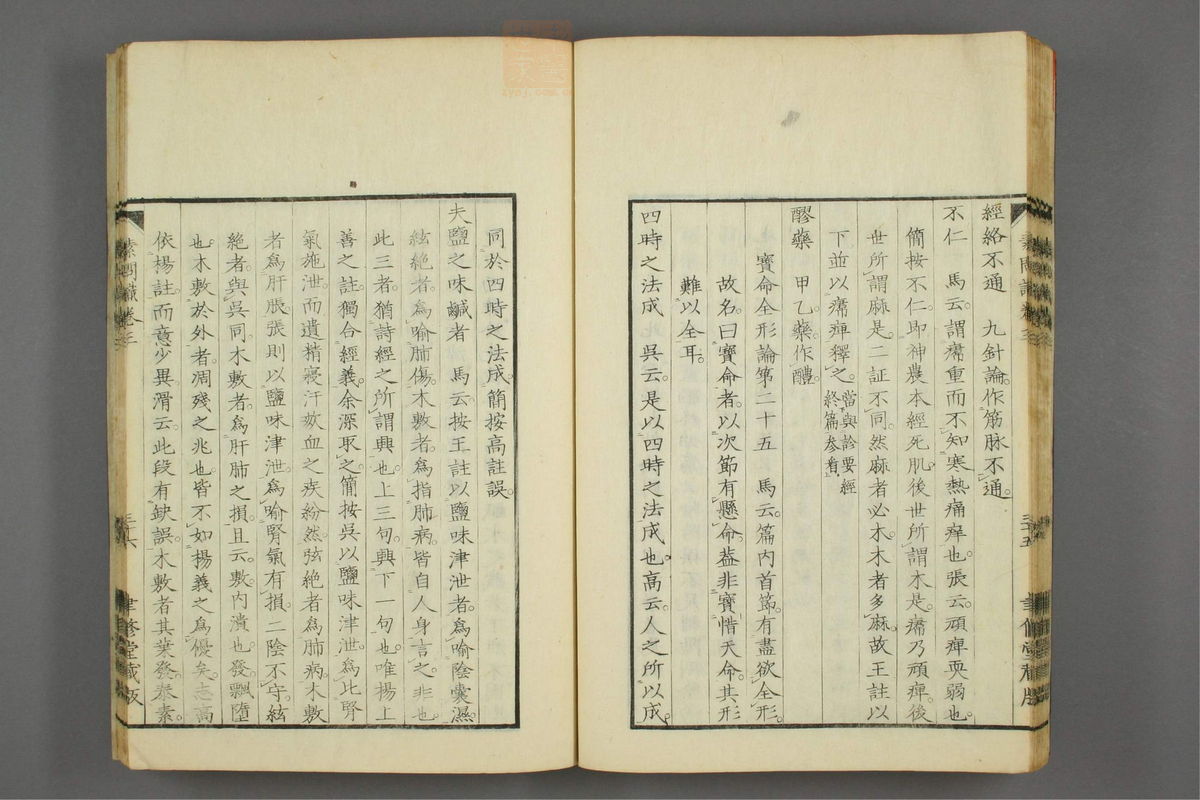 經絡不通　九針論作筋脉不通。
不仁　馬云。謂𤸷重而不知寒熱痛痒也。張云。頑痺耎弱也。
簡按不仁。即神農本經死肌。後世所謂木是。𤸷乃頑痺。後
世所謂麻是。二証不同。然麻者必木。木者多麻。故王註以
下並以𤸷痺釋之。當與診要經
終篇參看
醪藥　甲乙。藥作醴。
寶命全形論第二十五　馬云。篇內首節。有盡欲全形。
故名。曰寶命者。以次節有懸命。葢非寶惜天命。其形
難以全耳。
四時之法成　吳云。是以四時之法成也。高云。人之所以成。
素問識卷三
三十五
聿修堂藏版
同於四時之法成。簡按高註誤。
夫鹽之味鹹者　馬云。按王註以鹽味津泄者。爲喻陰囊濕。
絃絶者。爲喻肺傷。木敷者。爲指肺病。皆自人身言之。非也。
此三者。猶詩經之所謂興也。上三句。興下一句也。唯楊上
善之註。獨合經義。余深取之。簡按吳以鹽味津泄。爲比腎
氣施泄。而遺精寢汗衂血之疾紛然。弦絶者爲肺病。木敷
者爲肝脹。張則以鹽味津泄。爲喻腎氣有損。二陰不守。絃
絶者。與吳同。木敷者。爲肝肺之損。且云。敷。內潰也。發。飄墮
也。木敷於外者。凋殘之兆也。皆不如楊義之爲優矣。志高
依楊註。而意少異。滑云。此段有缺誤。木敷者其葉發。泰素。
素問識卷三
三十六
聿修堂藏版